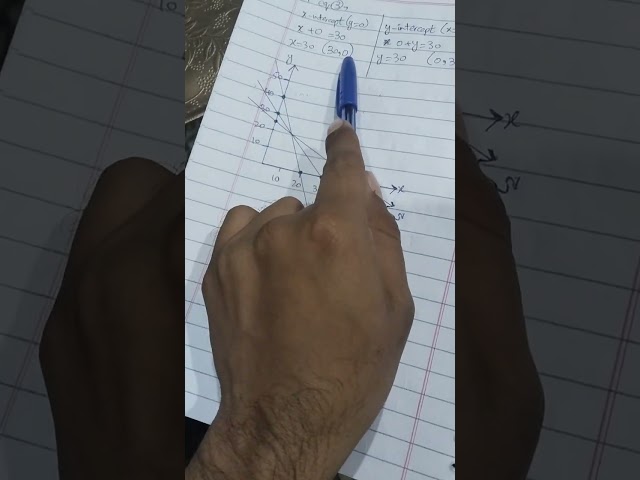 eq③
x-intercept (y=0)
x+0=30
x=30 (30,0)
y-intercept (x=
x 0+y=30
y=30 (0,3
y
50
40
30
20
10
10 20 3
x
x